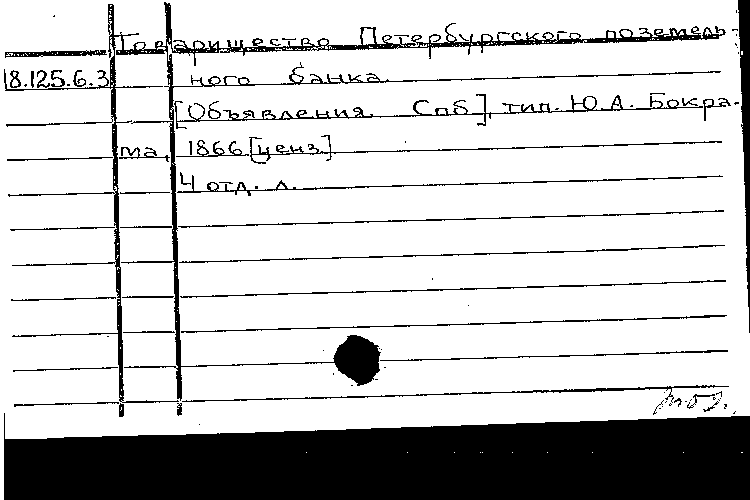 Товарищество Петербургского поземель-
18.125.6.3 ного банка.
[Объявления. Спб], тип. Ю.А. Бокра-
ма, 1866 [ценз.]
4 отд. л.